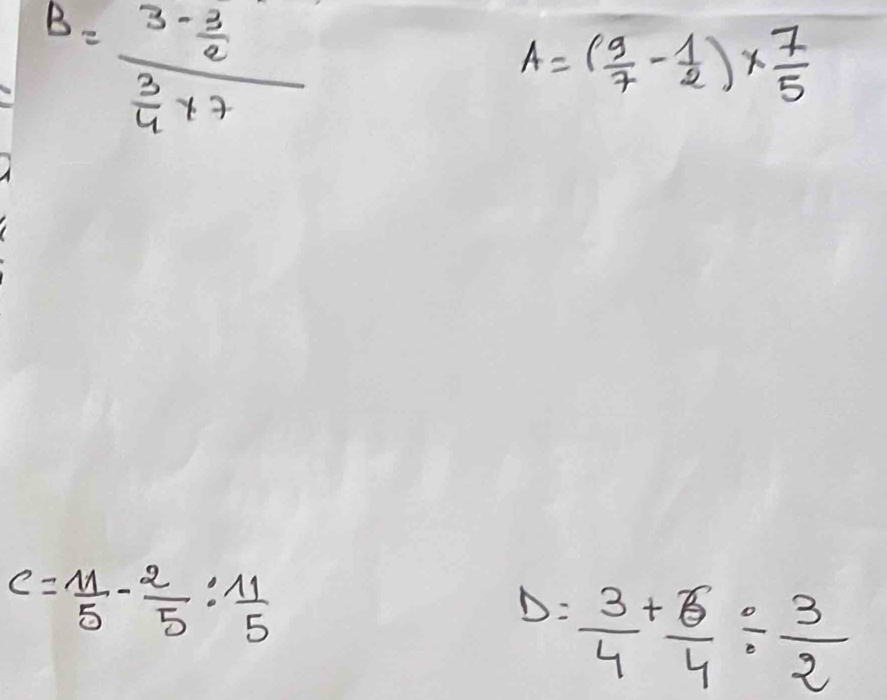 B = (3 - 3/2) / (3/4 × 7)
A = (9/7 - 1/2) × 7/5
C = 11/5 - 2/5 : 11/5
D = 3/4 + 6/4 ÷ 3/2